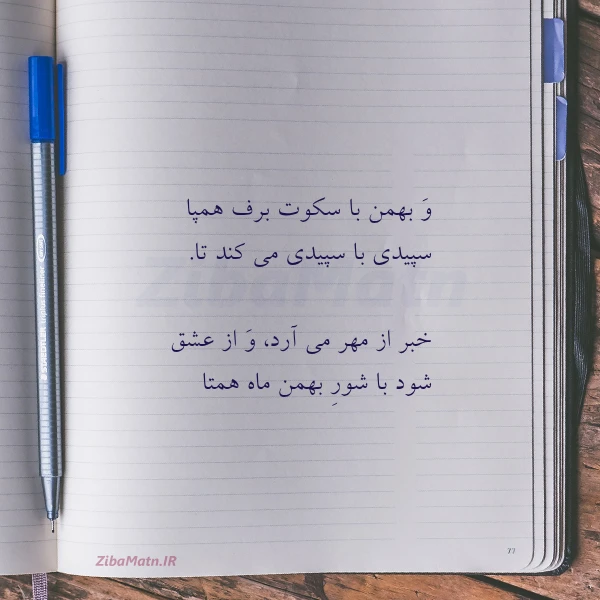 وَ بهمن با سکوت برف همپا
سپیدی با سپیدی می کند تا.
خبر از مهر می آرد، وَ از عشق
شود با شورِ بهمن ماه همتا
ZibaMatn
77
ZibaMatn.IR